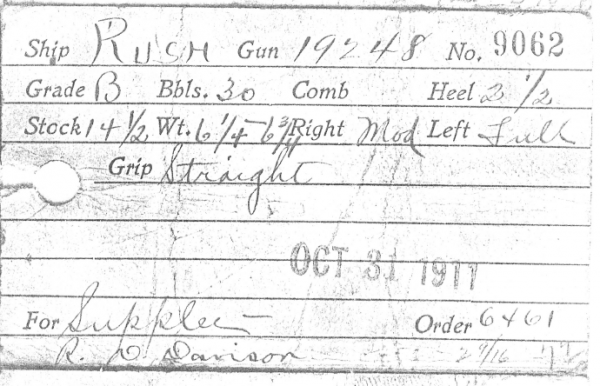 Ship RUSH Gun 19248 No. 9062
Grade B Bbls. 30 Comb Heel 3 1/2
Stock 14 1/2 Wt. 6 1/4 - 6 3/4 Right Mod Left Full
Grip Straight
OCT 31 1911
For Supplee
Order 6461
R. D. Davison 2 9/16